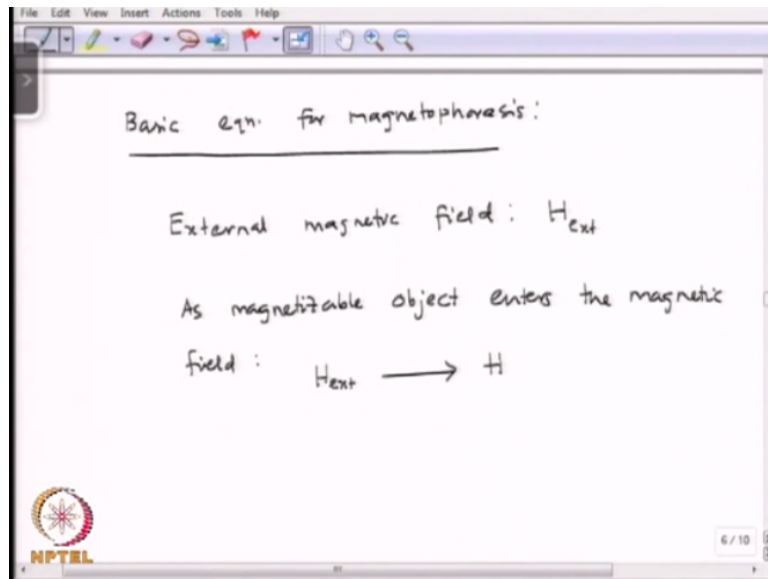 File Edit View Insert Actions Tools Help
Basic eqn. for magnetophoresis:
External magnetic field : H_ext
As magnetizable object enters the magnetic
field : H_ext ⟶ H
NPTEL
6 / 10